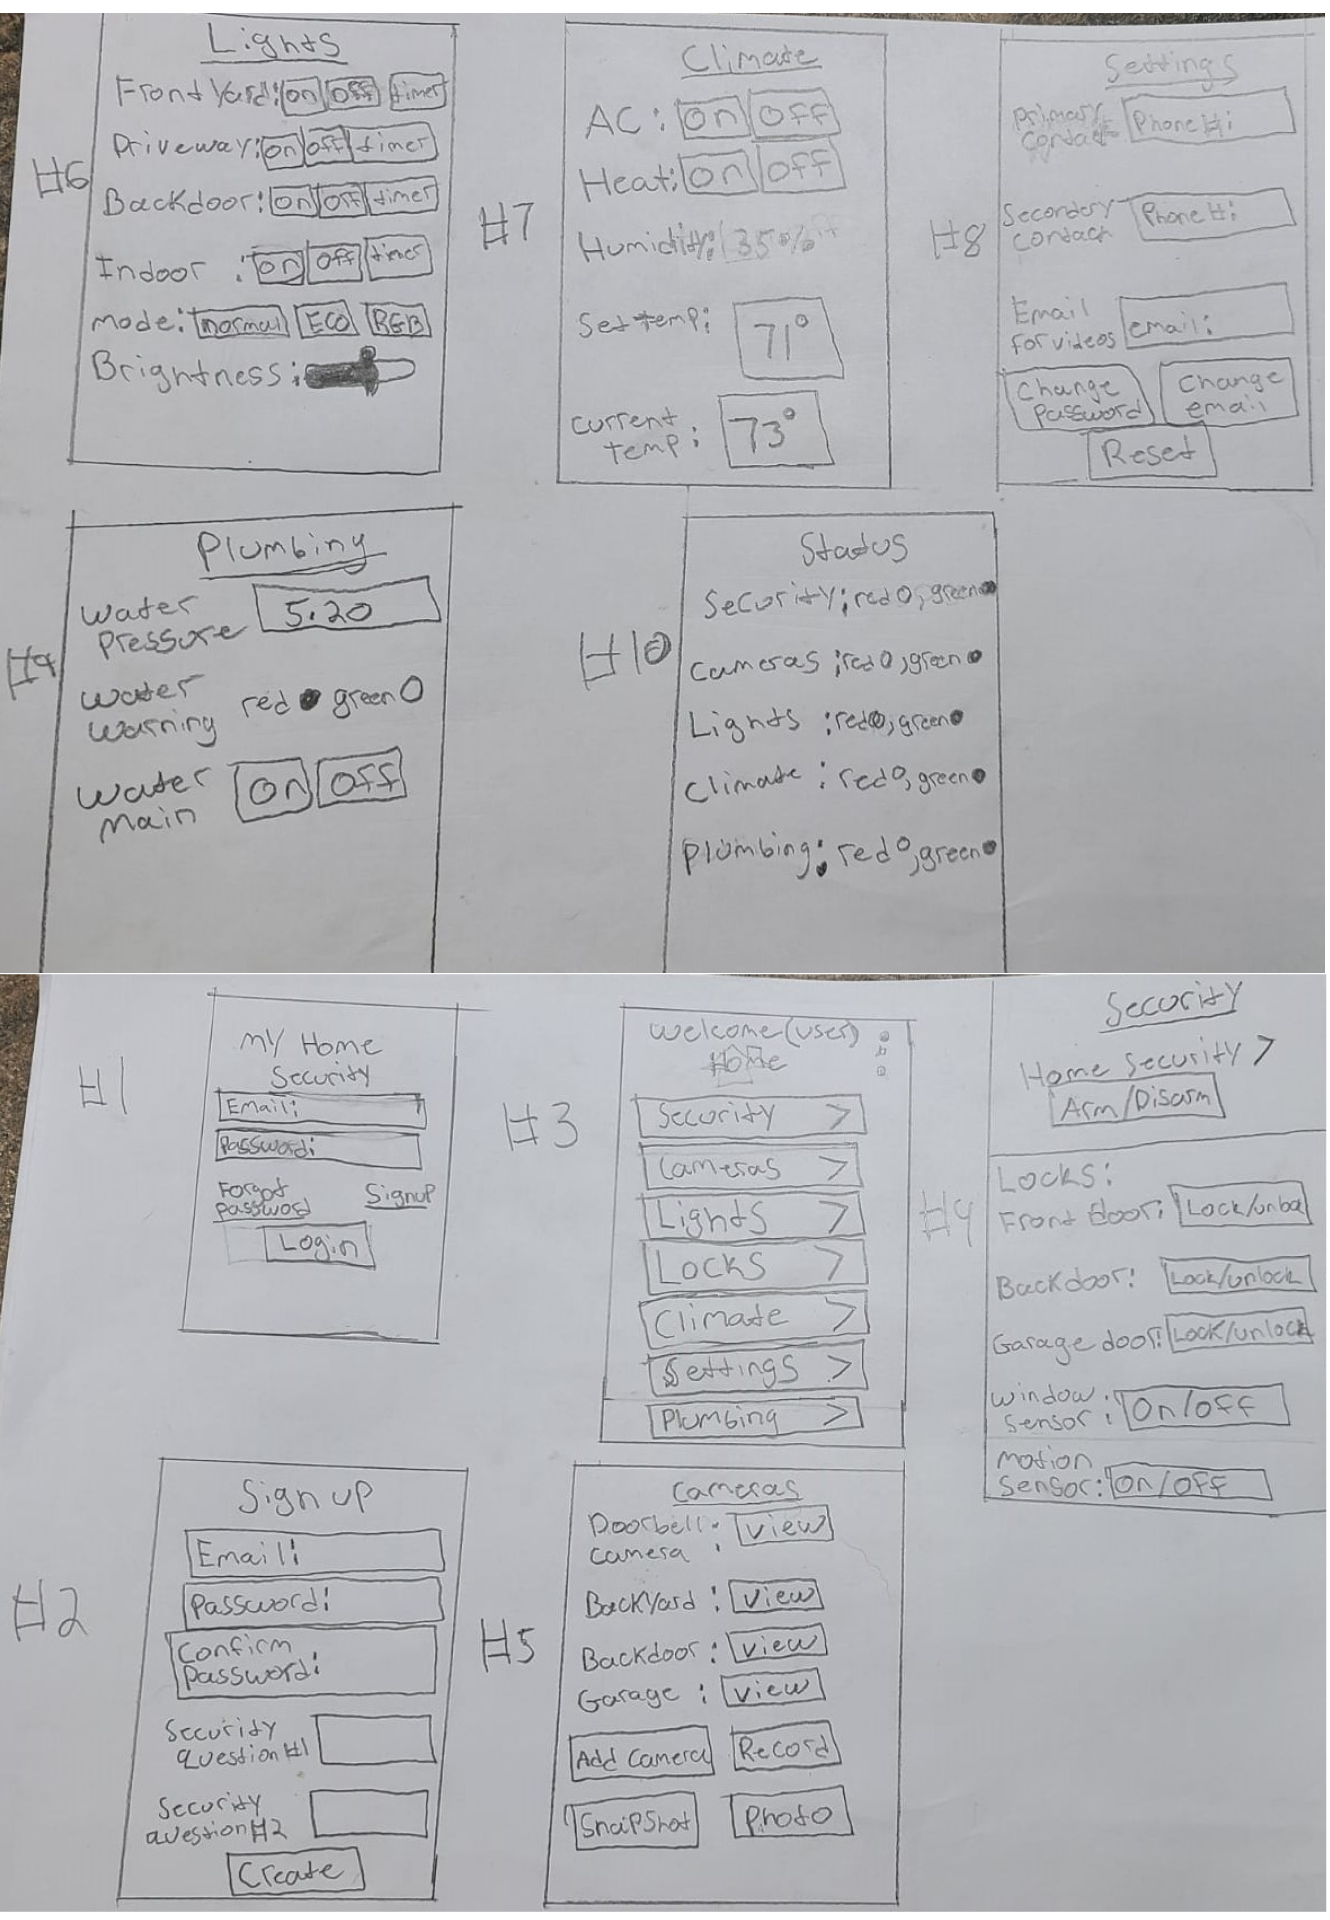 #6
Lights
Front Yard: on off timer
Driveway: on off timer
Backdoor: on off timer
Indoor : on off timer
mode: normal ECO RGB
Brightness:
#7
Climate
AC: on off
Heat: on off
Humidity: 35%
Set temp: 71°
current
temp: 73°
#8
Settings
Primary
Contact: Phone #:
Secondary
Contact Phone #:
Email
for videos email:
Change
Password
Change
email
Reset
#9
Plumbing
Water
Pressure 5.20
Water
Warning red green
Water
Main on off
#10
Status
Security; red, green
Cameras ; red, green
Lights : red, green
Climate : red, green
Plumbing: red, green
#1
My Home
Security
Email:
Password:
Forgot
password
Signup
Login
#3
Welcome (user)
Home
Security >
Cameras >
Lights >
Locks >
Climate >
Settings >
Plumbing >
#4
Security
Home Security >
Arm/Disarm
Locks:
Front door:
Backdoor: Lock/unlock
Garage door: Lock/unlock
Window
Sensor: On/off
motion
Sensor: On/OFF
#2
Sign up
Email:
Password:
Confirm
Password:
Security
question #1
Security
question #2
Create
#5
Cameras
Doorbell
camera : View
BackYard : View
Backdoor : View
Garage : View
Add Camera Record
SnaipShot Photo